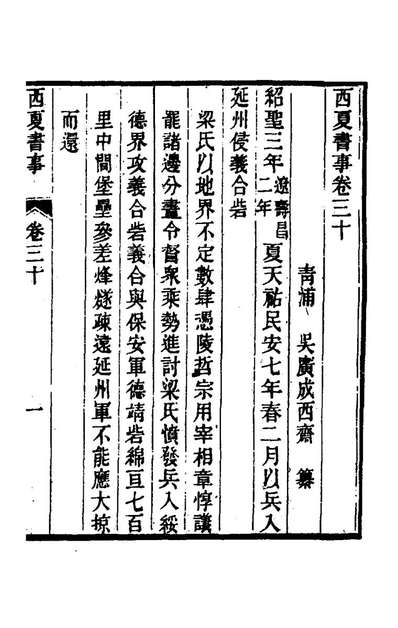 西夏書事卷三十
青浦 吳廣成西齋 纂
紹聖三年遼壽昌二年夏天祐民安七年春二月以兵入
延州侵義合砦
梁氏以地界不定數肆憑陵哲宗用宰相章惇議
罷諸邊分畫令督眾乘勢進討梁氏憤發兵入綏
德界攻義合砦義合與保安軍德靖砦綿亘七百
里中間堡壘參差烽燧疎遠延州軍不能應大掠
而還
西夏書事 卷三十 一